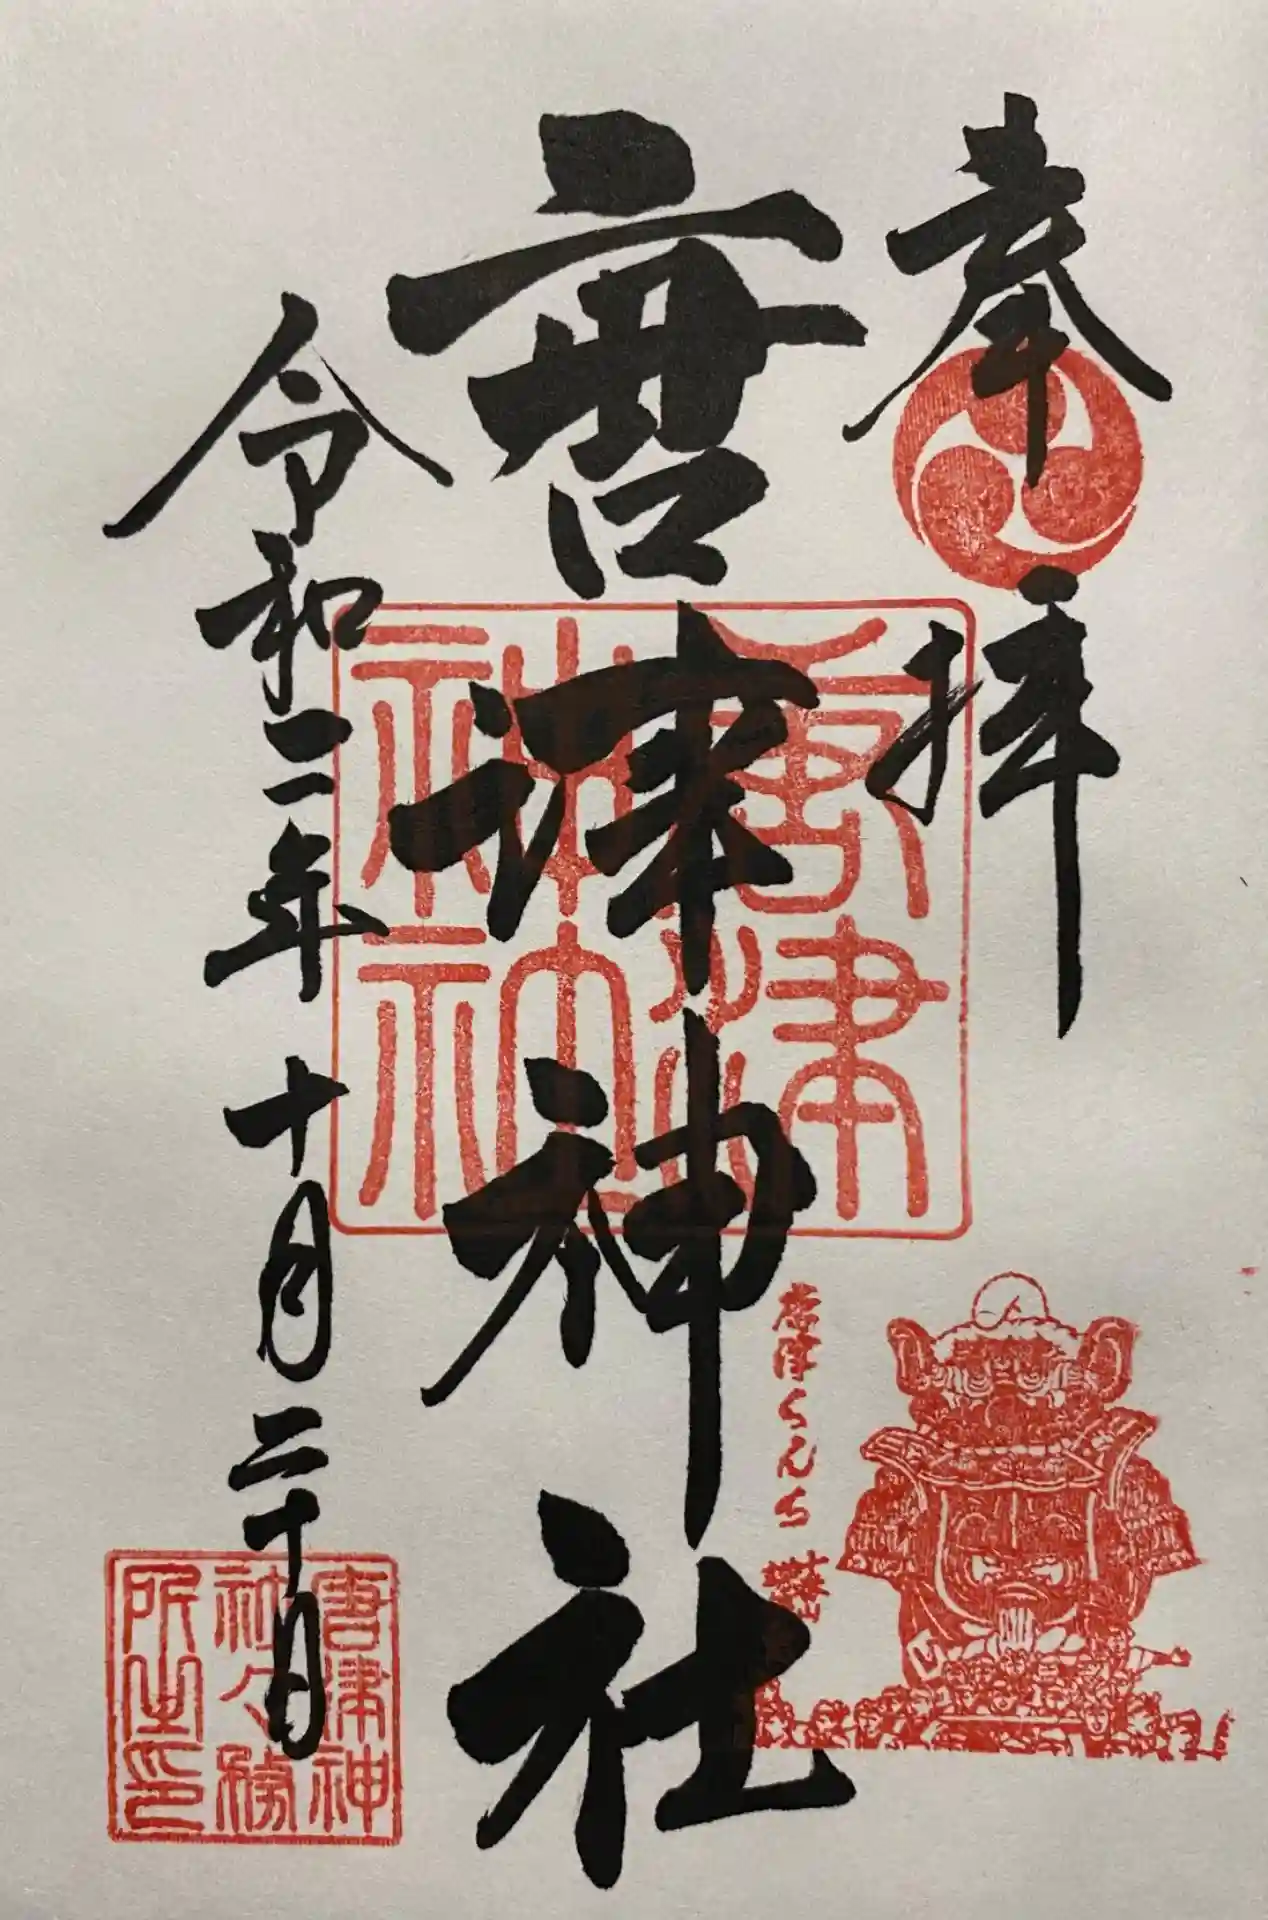 奉拝
唐津神社
令和二年十月二十日
唐津神社
唐津くんち
唐津神
社々務
所之印